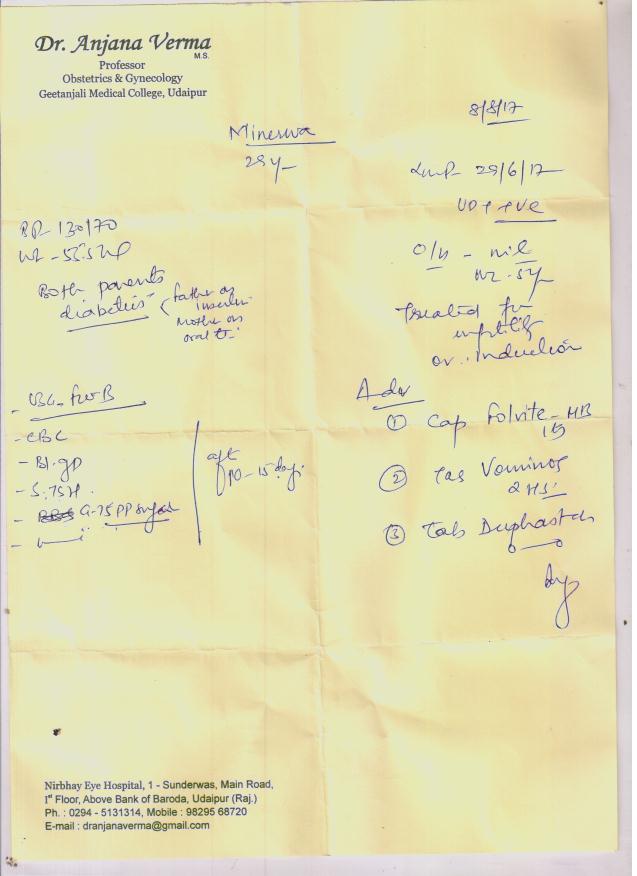 Dr. Anjana Verma
M.S.
Professor
Obstetrics & Gynecology
Geetanjali Medical College, Udaipur
8/8/17
Minerwa
29y
LMP 29/6/17
UPT +ve
BP - 130/70
Wt -
O/H - nil
Both parents
diabetic
father on
insulin
Mother on
oral
Treated for
infertility
ov. induction
Adv
- USG - FWB
- CBC
- Bl. gp
- S. TSH
- G-75 PP sugar
aft
10 - 15 days
① Cap Folvite - MB
② Tab Vominos
2 HS
③ Tab Duphaston
Nirbhay Eye Hospital, 1 - Sunderwas, Main Road,
1st Floor, Above Bank of Baroda, Udaipur (Raj.)
Ph. : 0294 - 5131314, Mobile : 98295 68720
E-mail : dranjanaverma@gmail.com